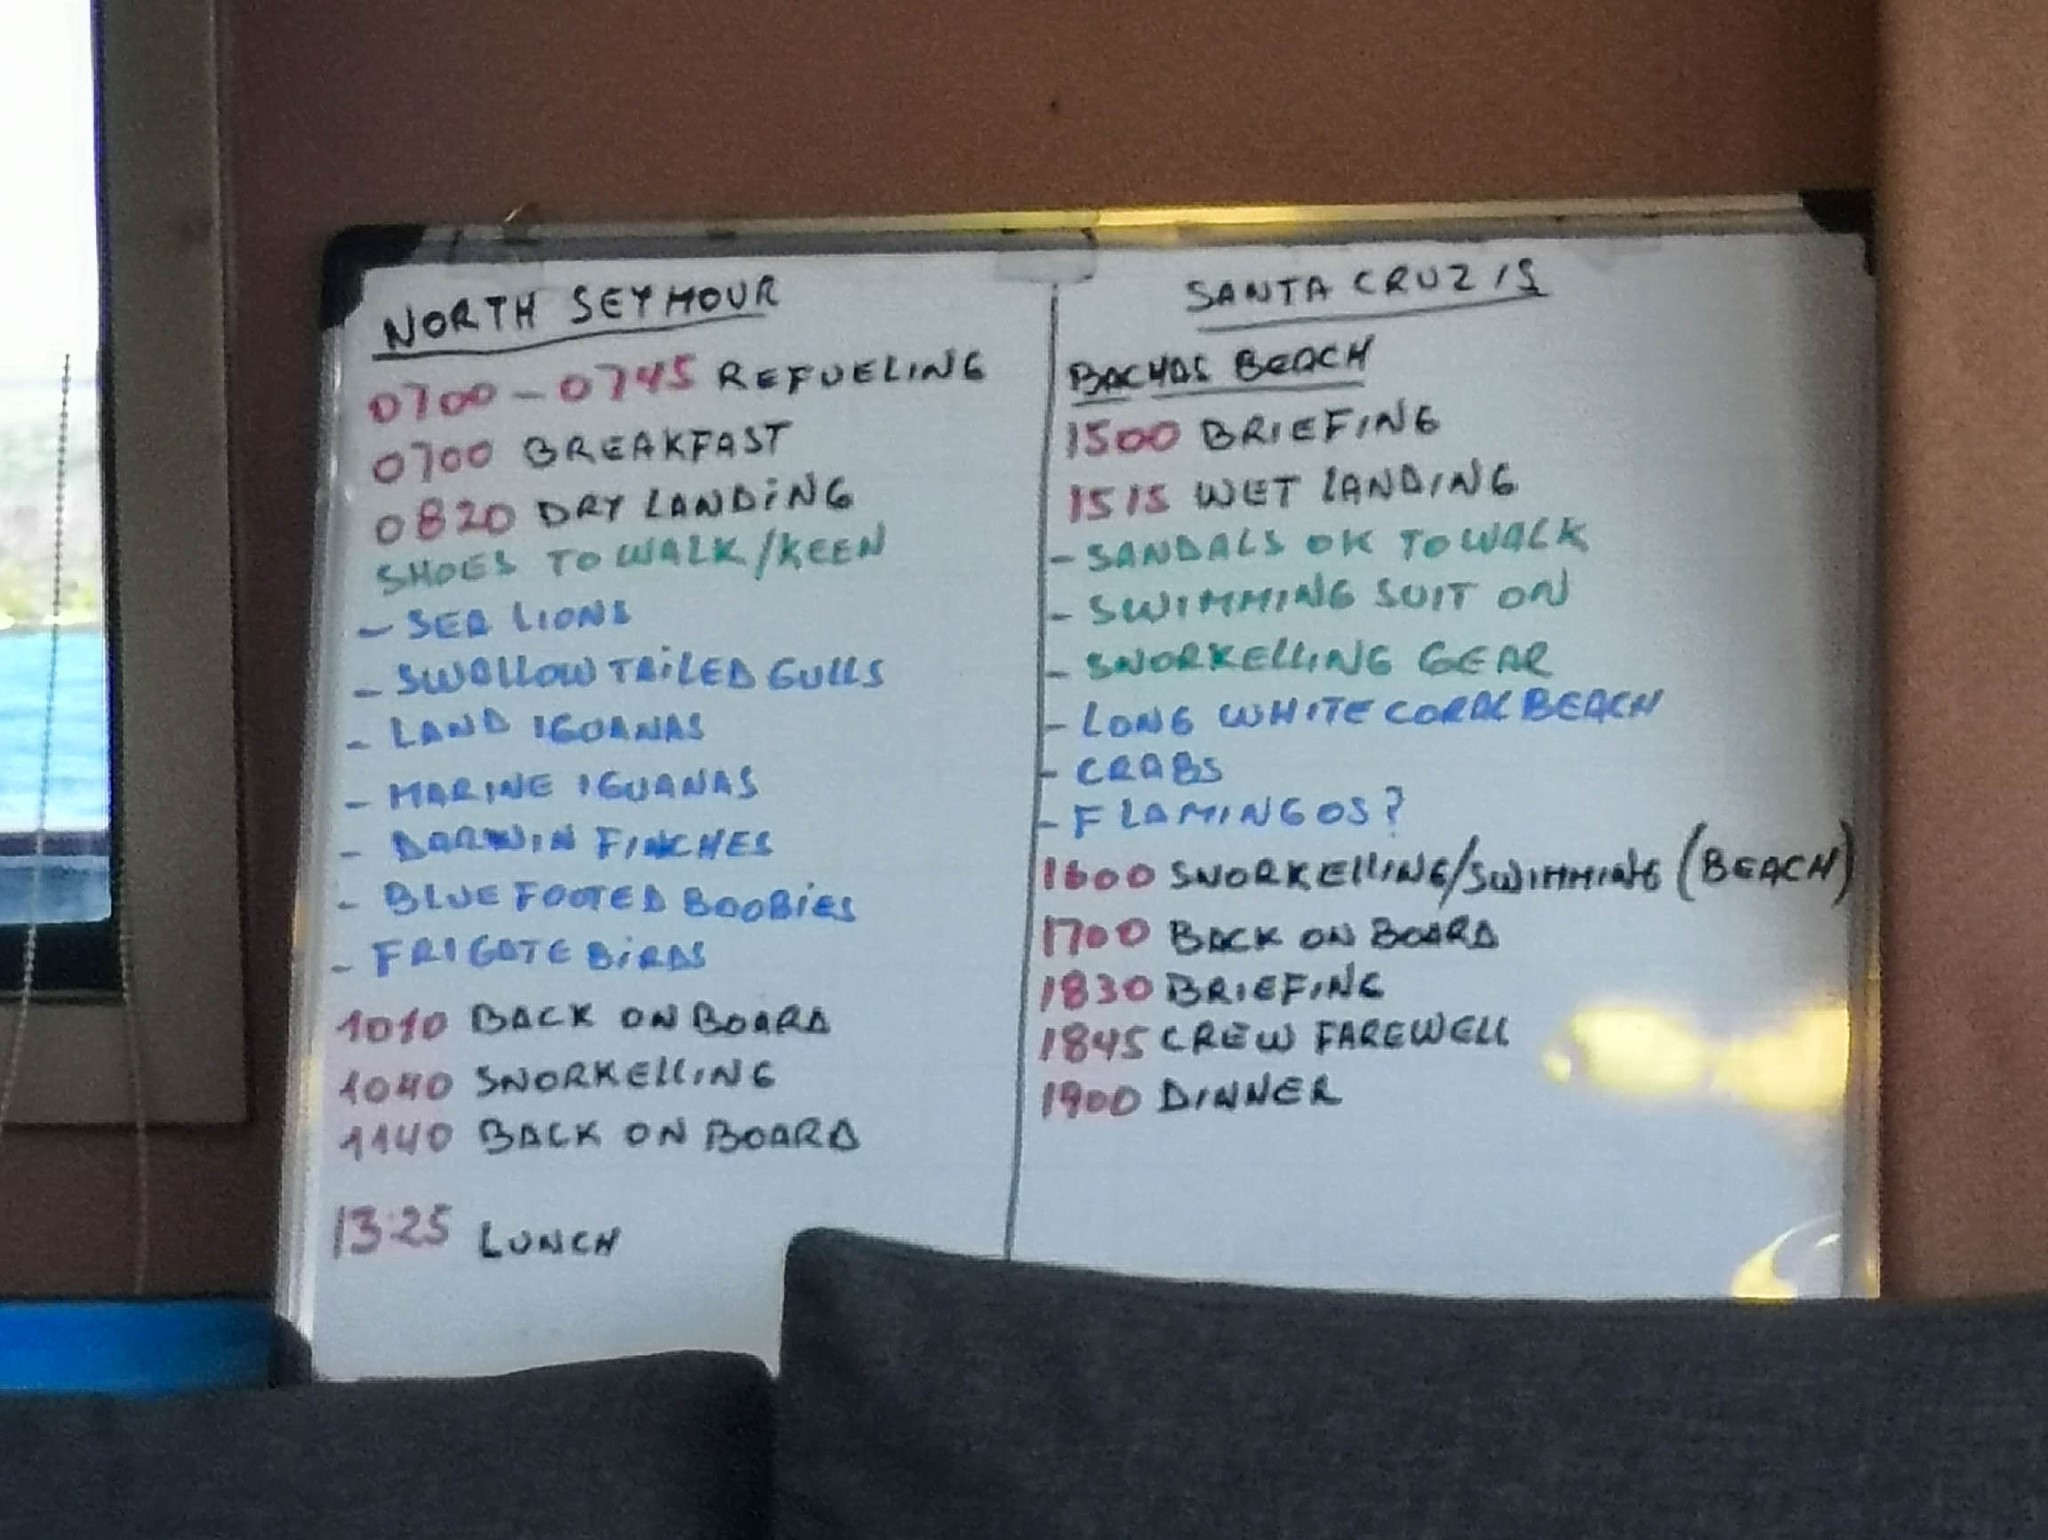 NORTH SEYMOUR
0700 - 0745 REFUELING
0700 BREAKFAST
0820 DRY LANDING
SHOES TO WALK/KEEN
- SEA LIONS
- SWALLOW TAILED GULLS
- LAND IGUANAS
- MARINE IGUANAS
- DARWIN FINCHES
- BLUE FOOTED BOOBIES
- FRIGATE BIRDS
1010 BACK ON BOARD
1040 SNORKELLING
1140 BACK ON BOARD
13:25 LUNCH
SANTA CRUZ IS
BACHAS BEACH
1500 BRIEFING
1515 WET LANDING
- SANDALS OK TO WALK
- SWIMMING SUIT ON
- SNORKELLING GEAR
- LONG WHITE CORAL BEACH
- CRABS
- FLAMINGOS?
1600 SNORKELLING/SWIMMING (BEACH)
1700 BACK ON BOARD
1830 BRIEFING
1845 CREW FAREWELL
1900 DINNER